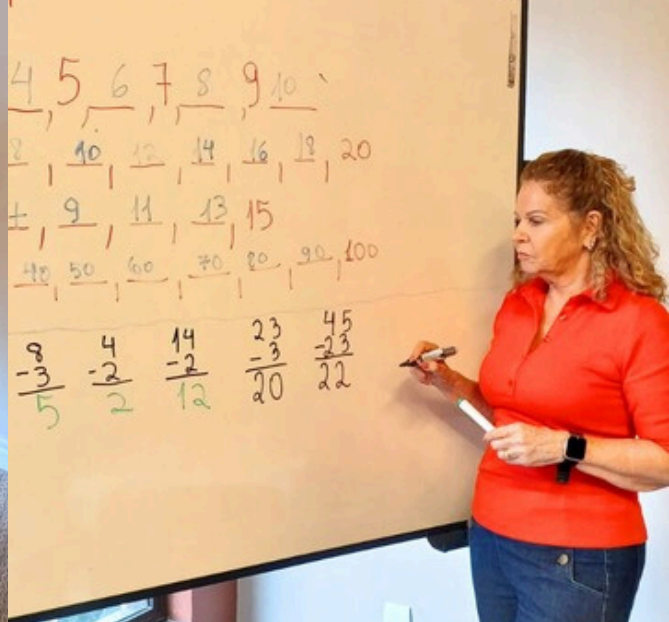 4, 5, 6, 7, 8, 9 10
8, 10, 12, 14, 16, 18, 20
, 9, 11, 13, 15
40, 50, 60, 70, 80, 90, 100
8 4 14 23 45
-3 -2 -2 -3 -23
5 2 12 20 22